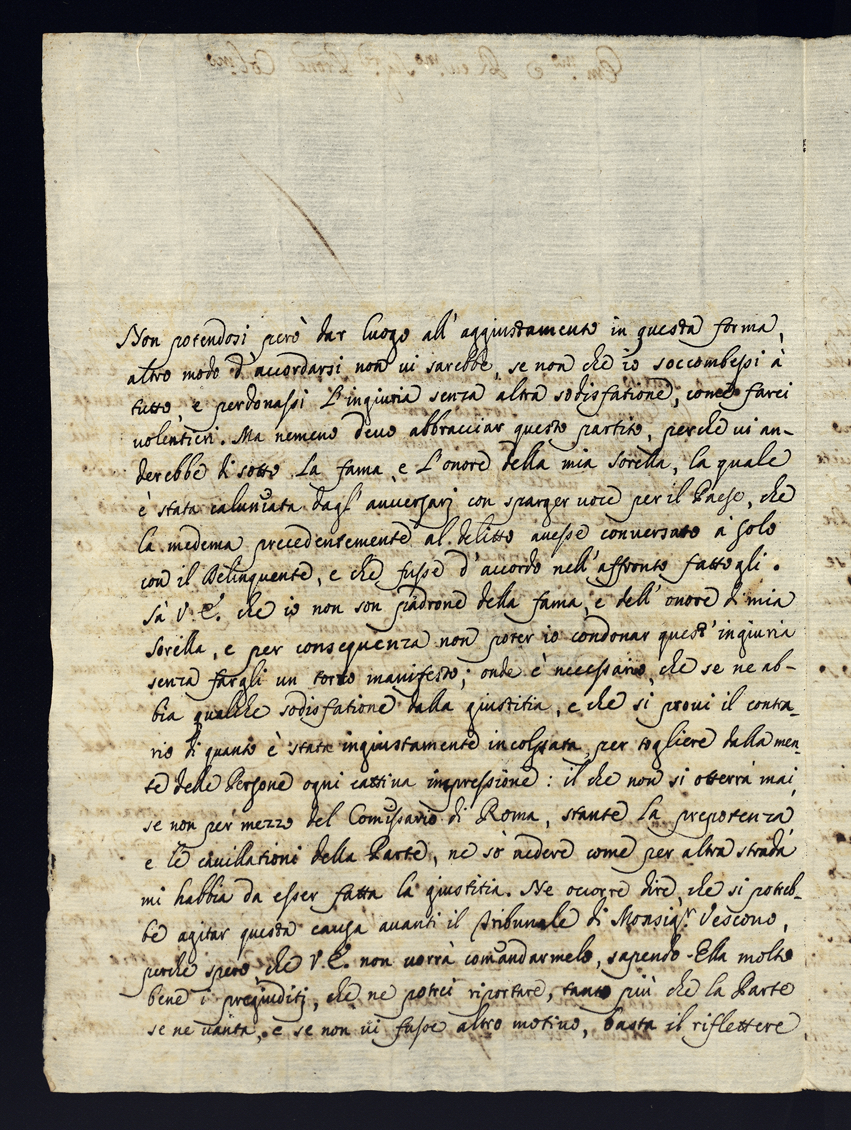 Non potendosi però dar luogo all' aggiustamento in questa forma,
altro modo d'accordarsi non ui sarebbe, se non che io soccombessi à
tutto, e perdonassi l'ingiuria senza altra sodisfatione, come farei
uolentieri. Ma nemeno deuo abbracciar questo partito, perche ui an-
derebbe di sotto la fama, e l'onore della mia Sorella, la quale
è stata caluniata dagl' auuersarj con sparger uoce per il Paese, che
la medema precedentemente al delitto auesse conuersato à solo
con il Delinquente, e che fusse d'accordo nell'affronto fattogli.
Sà V.E. che io non son padrone della fama, e dell' onore di mia
Sorella, e per consequenza non poter io condonar quest' ingiuria
senza fargli un torto manifesto; onde è necessario, che se ne ab-
bia qualche sodisfatione dalla giustitia, e che si proui il contra-
rio di quanto è stata ingiustamente incolpata, per togliere dalla men-
te delle Persone ogni cattiua impressione: il che non si otterrà mai,
se non per mezzo del Comissario di Roma, stante la prepotenza
e le cauillationi della Parte, ne sò uedere come per altra strada
mi habbia da esser fatta la giustitia. Ne occorre dire, che si potreb-
be agitar questa causa auanti il Tribunale di Monsig.r Vescouo,
perche spero che V.E. non uorrà comandarmelo, sapendo Ella molto
bene i pregiuditj, che ne potrei riportare, tanto più che la Parte
se ne uanta, e se non ui fusse altro motiuo, basta il riflettere